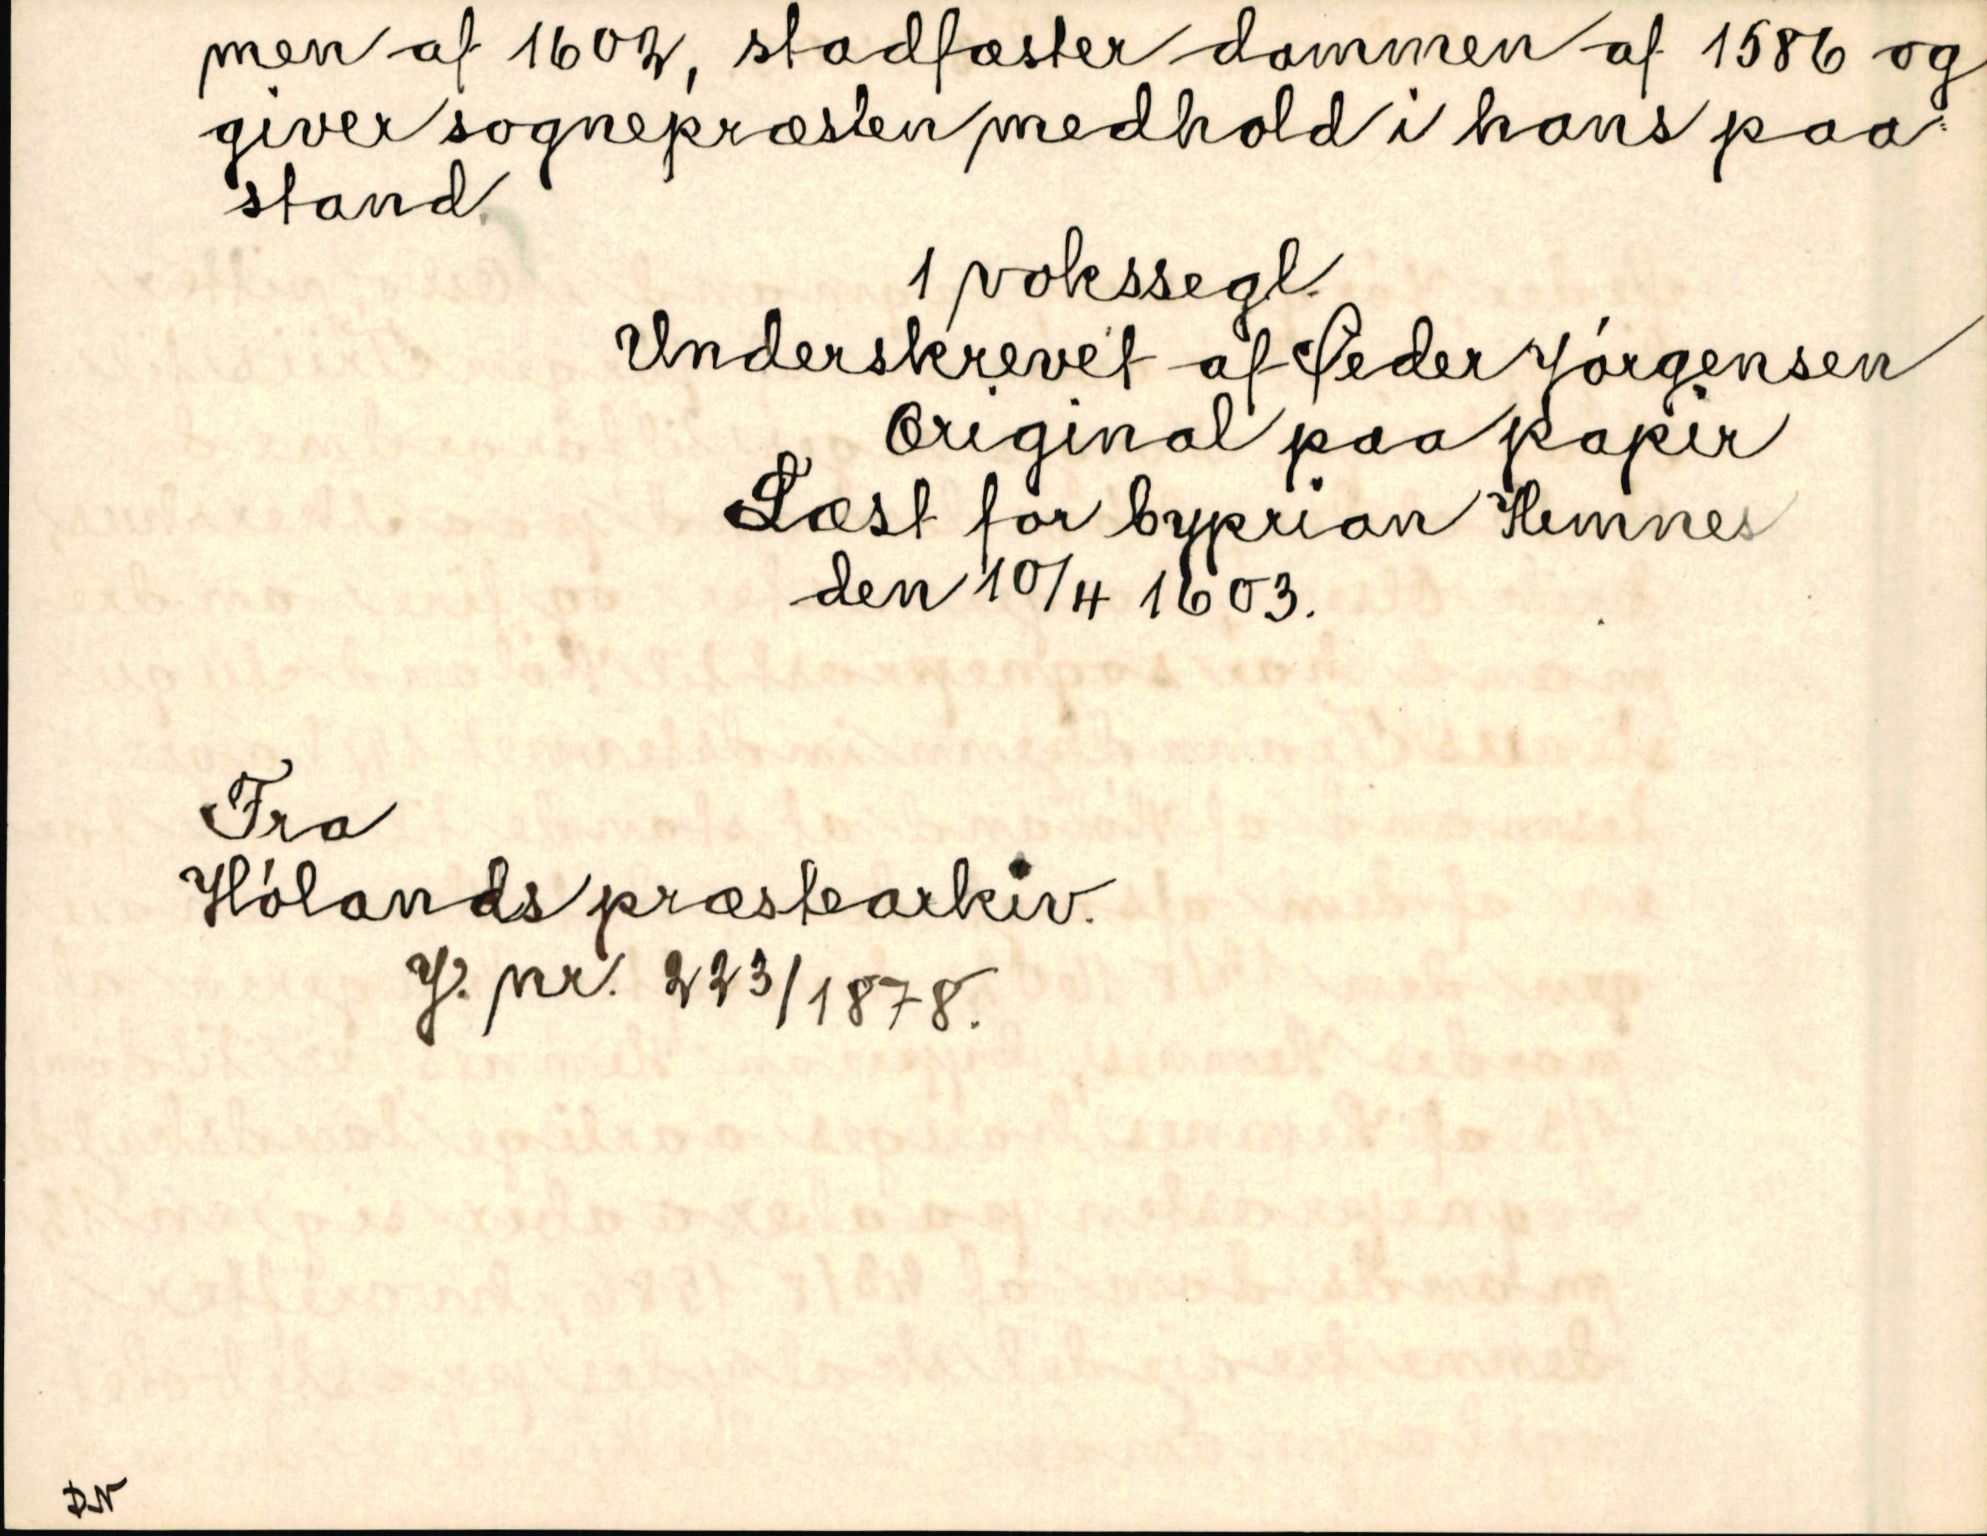 men af 1602, stadfæster dommen af 1586 og
giver sognepræsten medhold i hans paa-
stand.
1 vokssegl.
Underskrevet af Peder Jórgensen
Original paa papir
Læst for Cyprian Hemnes
den 10/4 1603.
Fra
Hólands præstearkiv.
J. nr. 223/1878.
DN